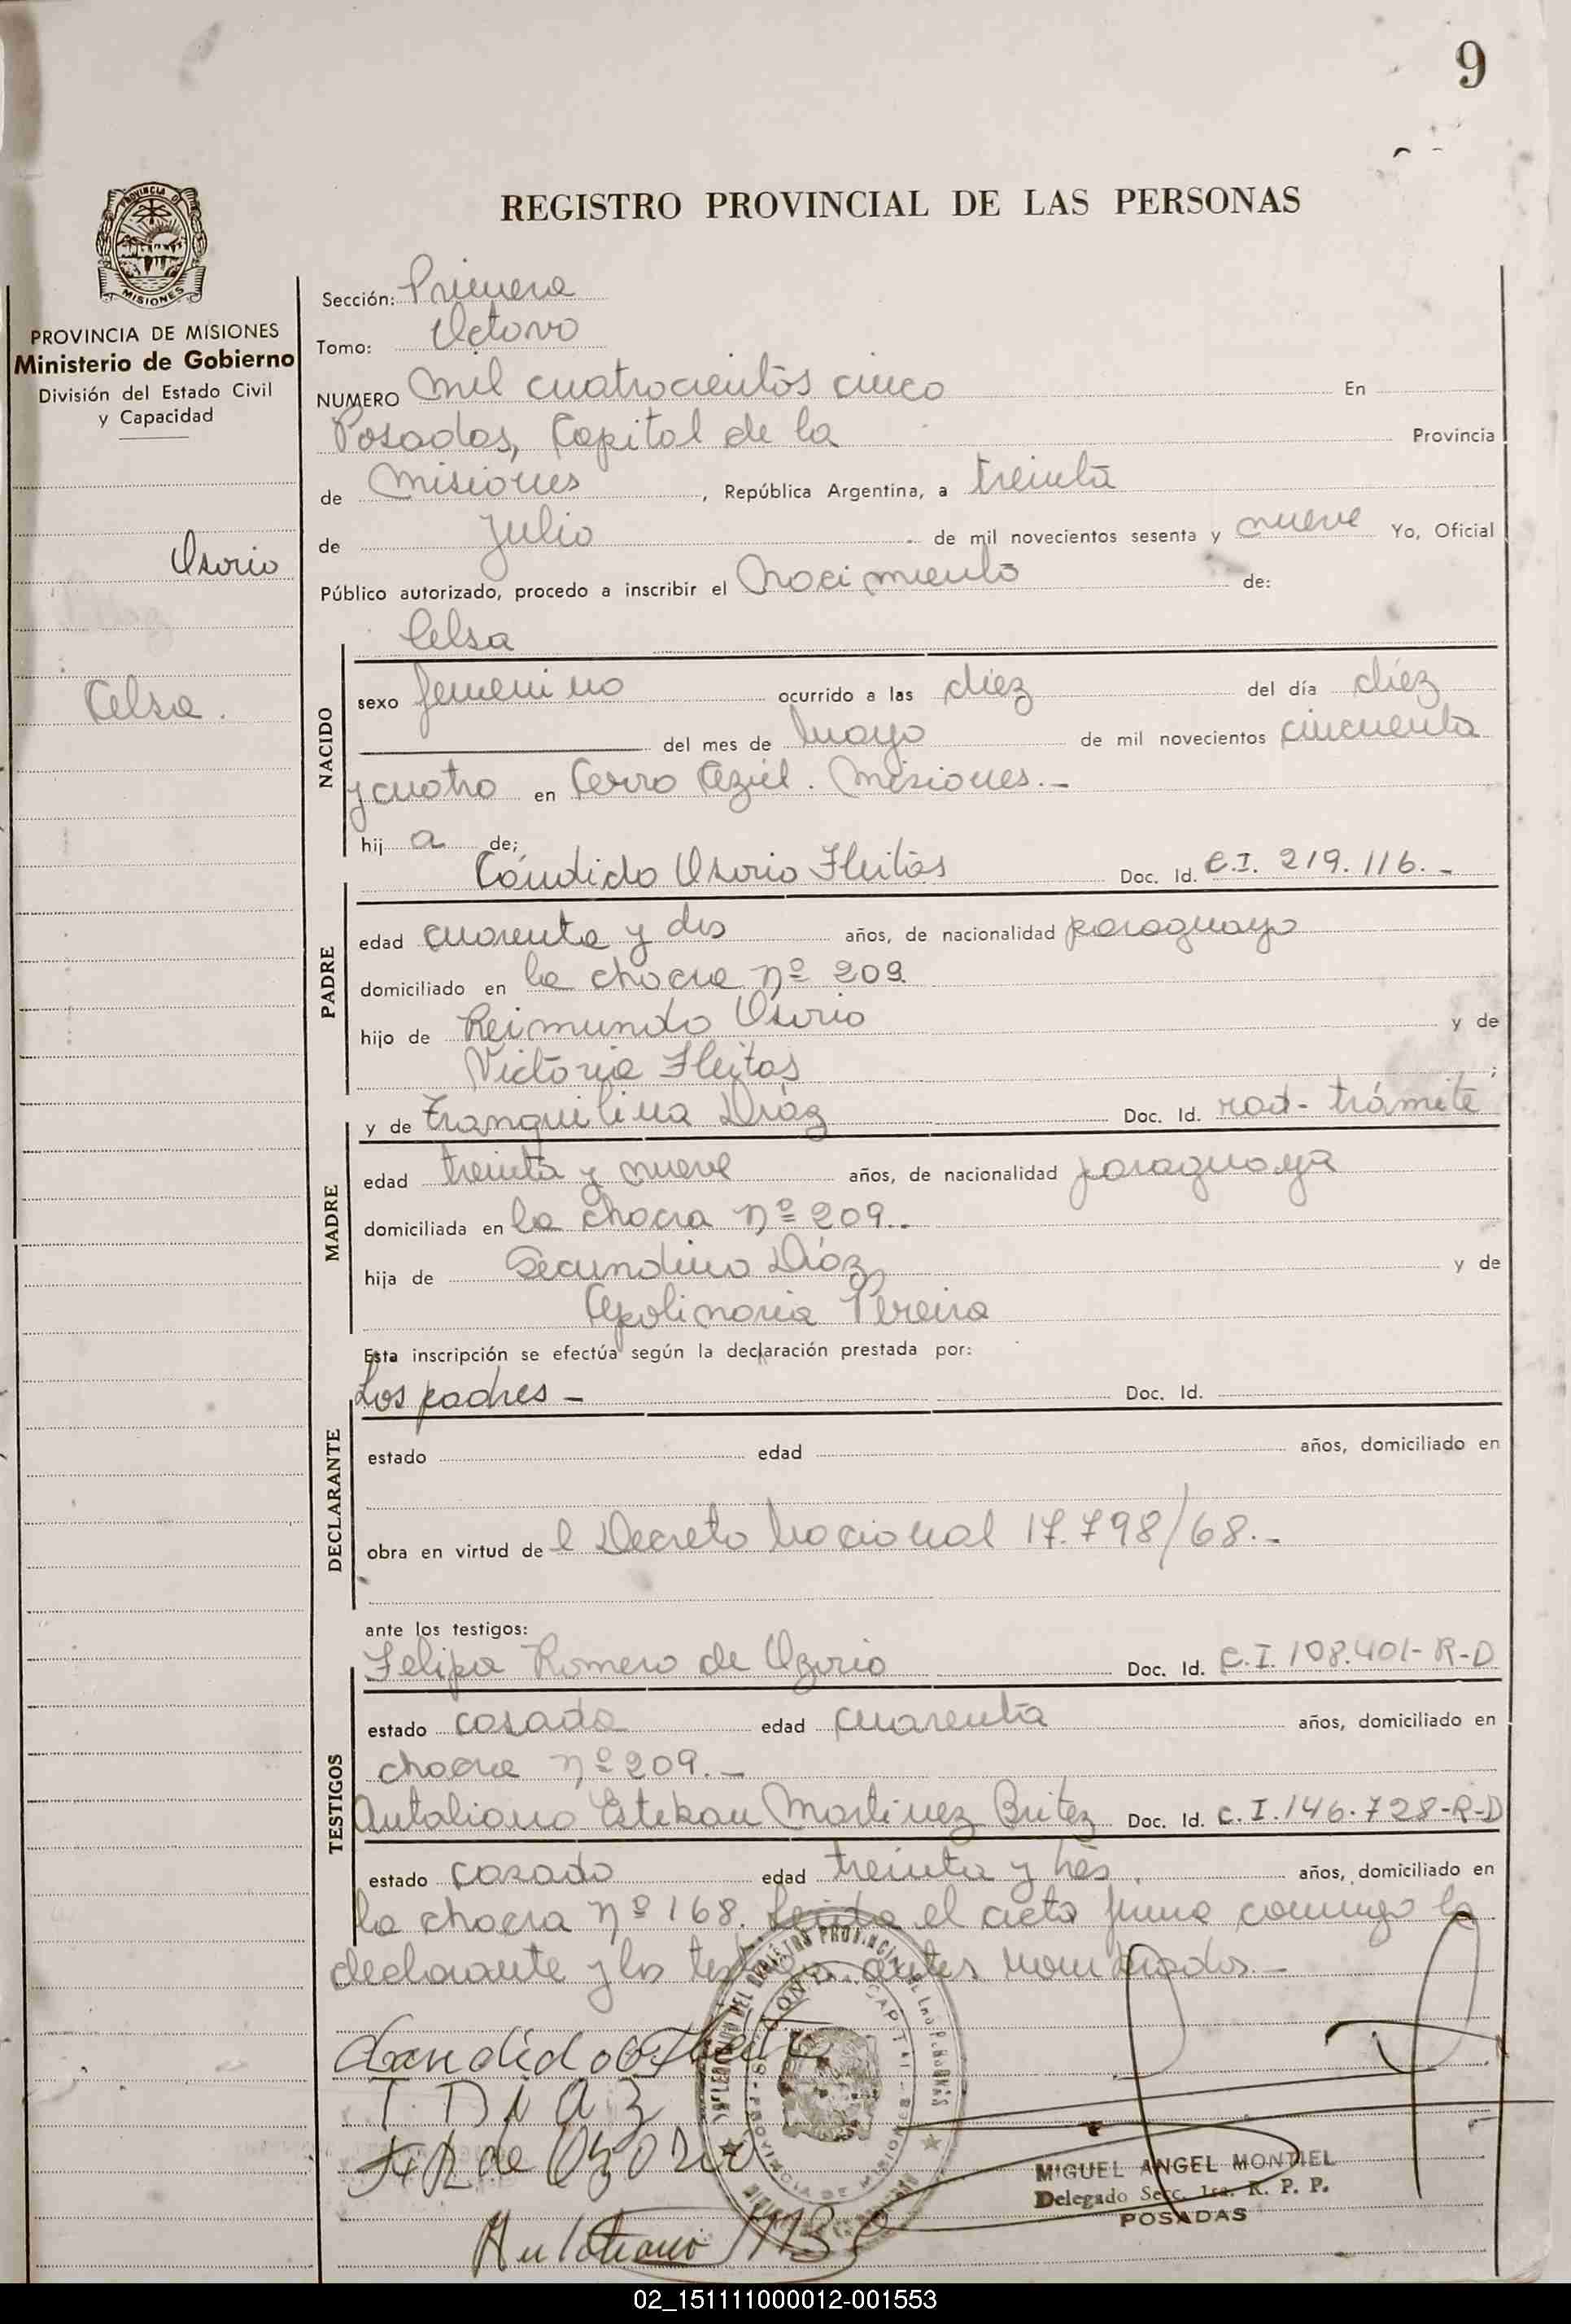 9
REGISTRO PROVINCIAL DE LAS PERSONAS
PROVINCIA DE MISIONES
Ministerio de Gobierno
División del Estado Civil
y Capacidad
Osorio
Celsa.
Sección: Primera
Tomo: Octavo
NUMERO Mil cuatrocientos cinco En
Posadas, Capital de la Provincia
de Misiones, República Argentina, a treinta
de Julio de mil novecientos sesenta y nueve Yo, Oficial
Público autorizado, procedo a inscribir el Nacimiento de:
NACIDO
Celsa
sexo femenino ocurrido a las diez del día diez
del mes de Mayo de mil novecientos cincuenta
y cuatro en Cerro Azul. Misiones.-
hij a de;
PADRE
Cándido Osorio Fleitas Doc. Id. C.I. 219.116.-
edad cuarenta y dos años, de nacionalidad paraguayo
domiciliado en la chacra nº 209
hijo de Reimundo Osorio y de
Victoria Fleitas ;
MADRE
y de Tranquilina Díaz Doc. Id. rad- trámite
edad treinta y nueve años, de nacionalidad paraguaya
domiciliada en la chacra nº 209.-
hija de Secundino Díaz y de
Apolinaria Pereira
Esta inscripción se efectúa según la declaración prestada por:
DECLARANTE
Los padres - Doc. Id.
estado edad años, domiciliado en
obra en virtud de l Decreto Nacional 17.798/68.-
ante los testigos:
TESTIGOS
Felipa Romero de Ozorio Doc. Id. C.I. 108.401-R-D
estado casada edad cuarenta años, domiciliado en
chacra nº 209.-
Antaliano Esteban Martinez Britez Doc. Id. C.I. 146.728-R-D
estado casado edad treinta y tres. años, domiciliado en
la chacra nº 168. Leida el acta firma conmigo la
declarante y los testigos antes nombrados.-
T. DiAz
F R de Ozorio
MIGUEL ANGEL MONTIEL
Delegado Secc. 1ra. R. P. P.
POSADAS
02_151111000012-001553